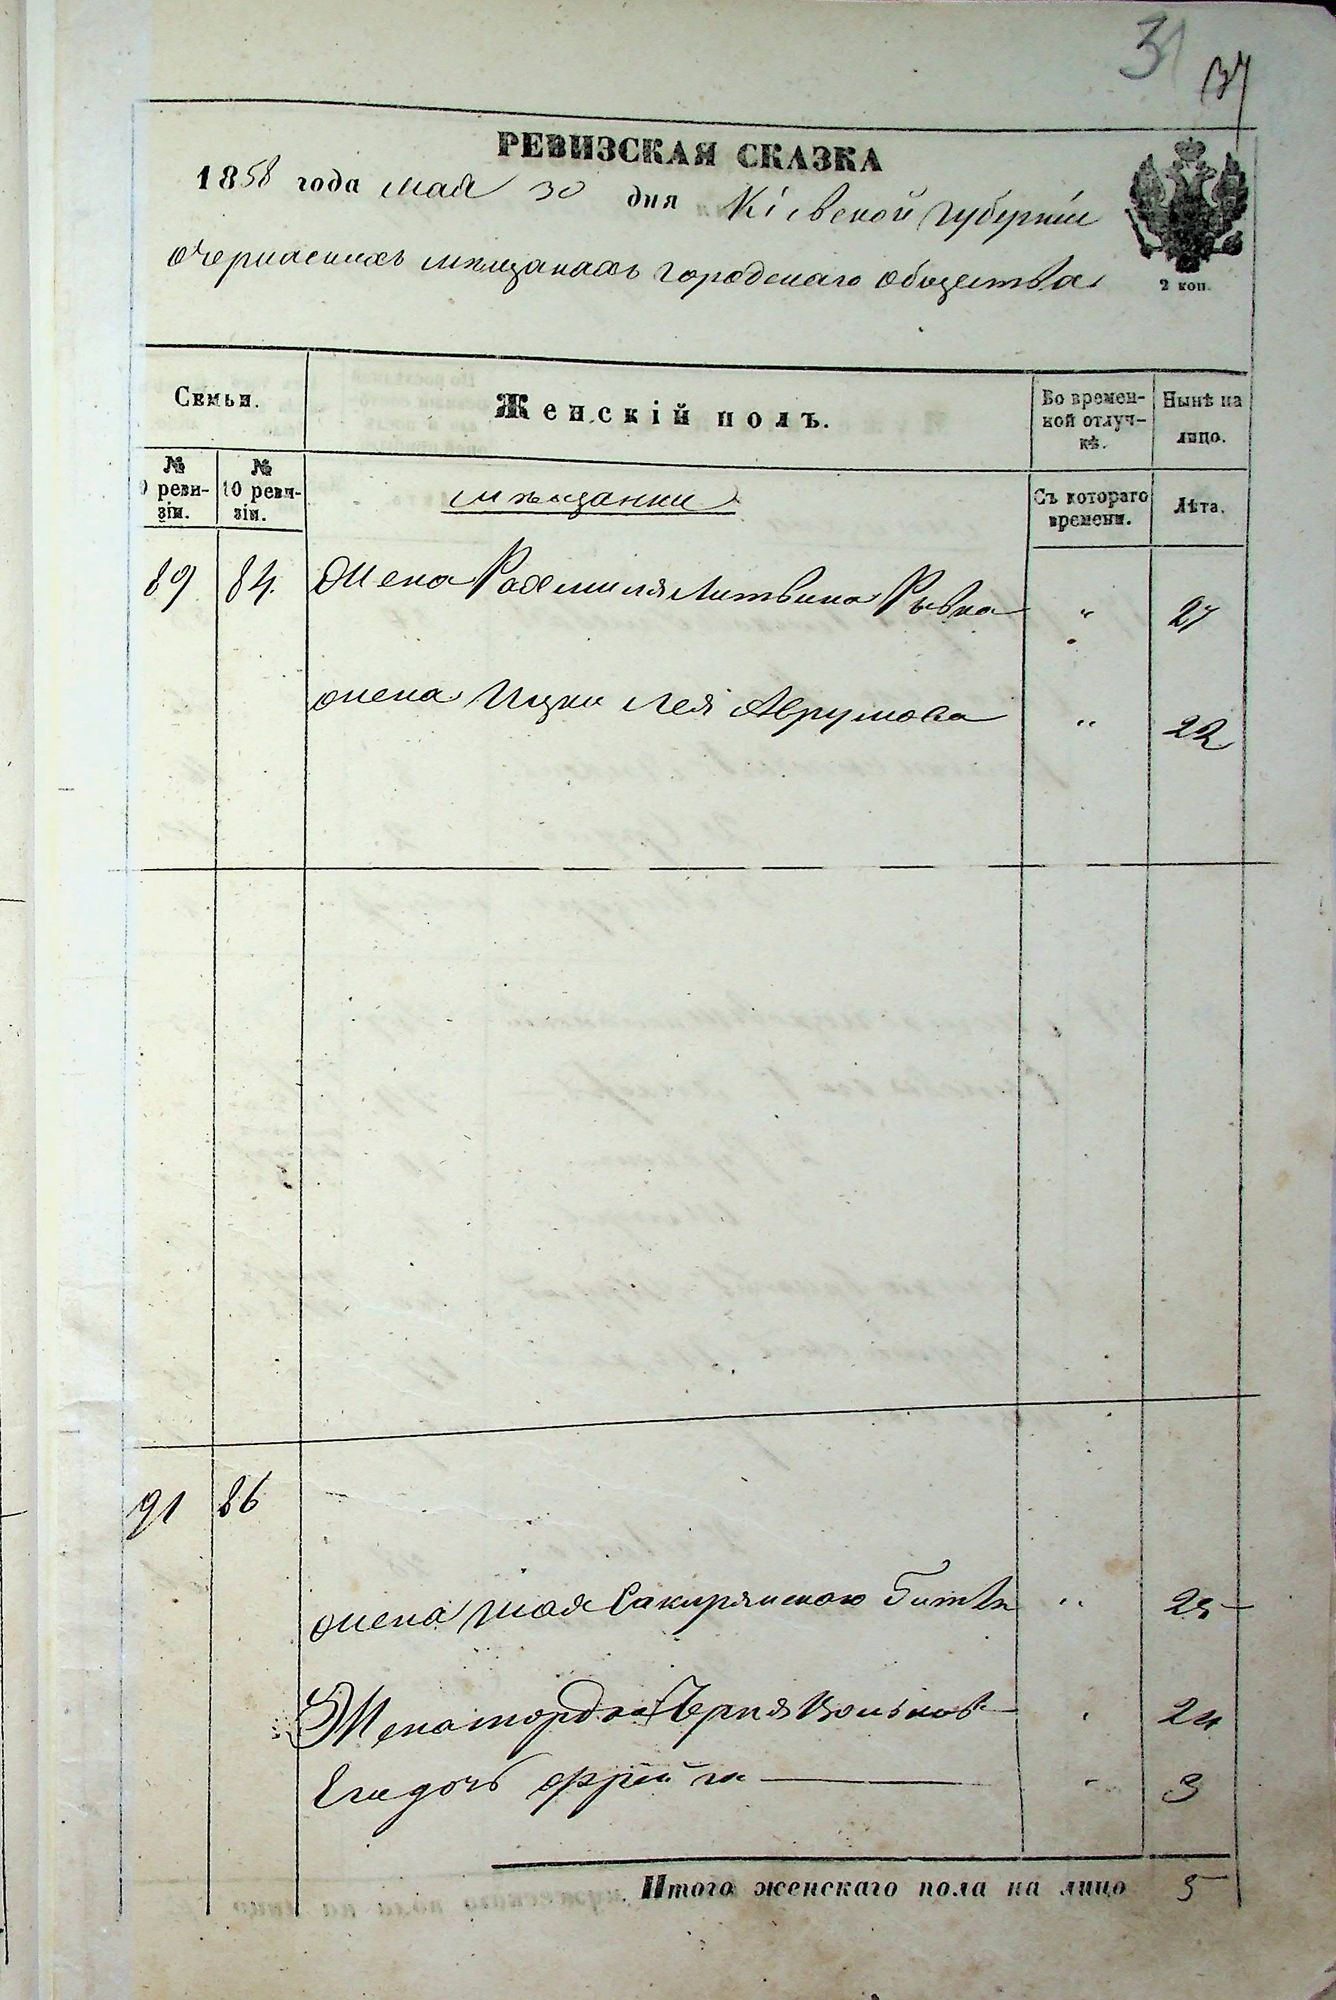 31
РЕВИЗСКАЯ СКАЗКА
1858 года мая 30 дня Кіевской губерніи
очеркаскихъ мѣщанахъ городскаго общества
2 коп.
Семьи.
Женскій полъ.
Во времен-
ной отлуч-
кѣ.
Нынѣ на
лицо.
№
9 реви-
зіи.
№
10 реви-
зіи.
мѣщанки
Съ котораго
времени.
Лѣта.
89 84. Жена Рахмиля Литвина Рывка " 27
жена Ицки Лея Аврумова " 22
91 86
жена Шая Сакирянскаго " 25
Жена Мордка Черня Вольков " 24
Его дочь Фрейга " 3
Итого женскаго пола на лицо 5